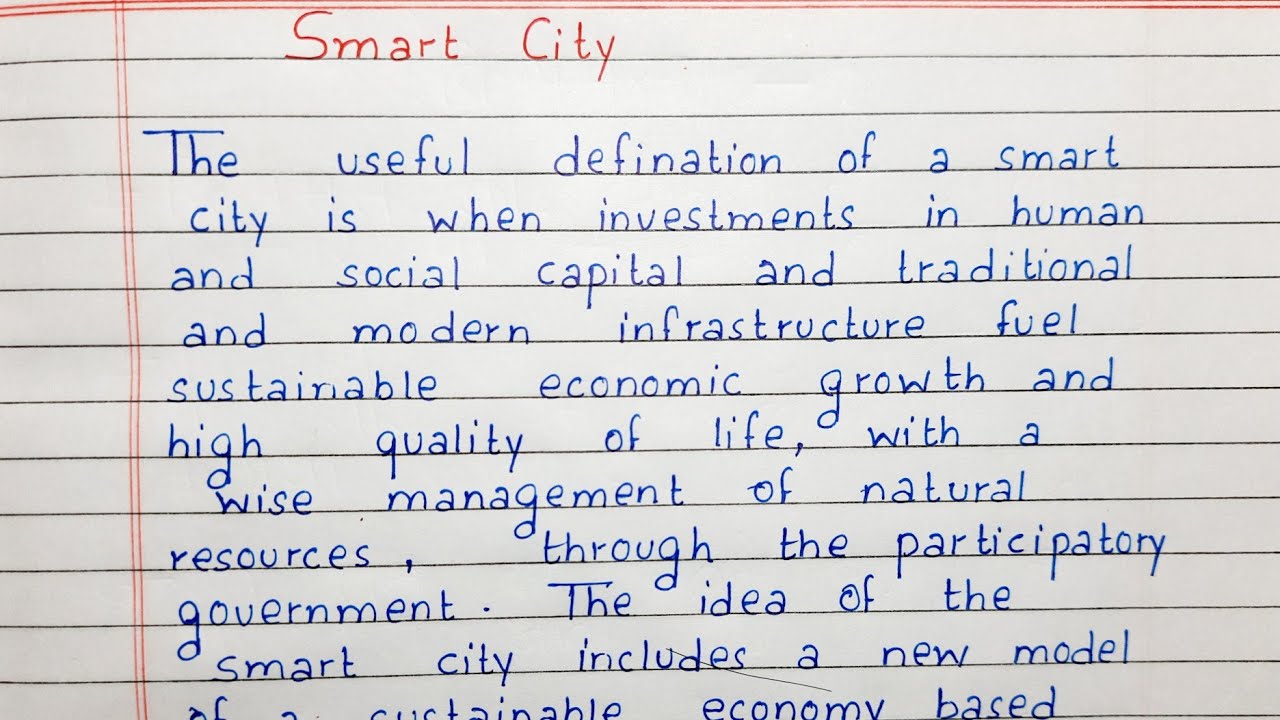 Smart City
The useful defination of a smart
city is when investments in human
and social capital and traditional
and modern infrastructure fuel
sustainable economic growth and
high quality of life, with a
wise management of natural
resources, through the participatory
government. The idea of the
smart city includes a new model
of a sustainable economy based